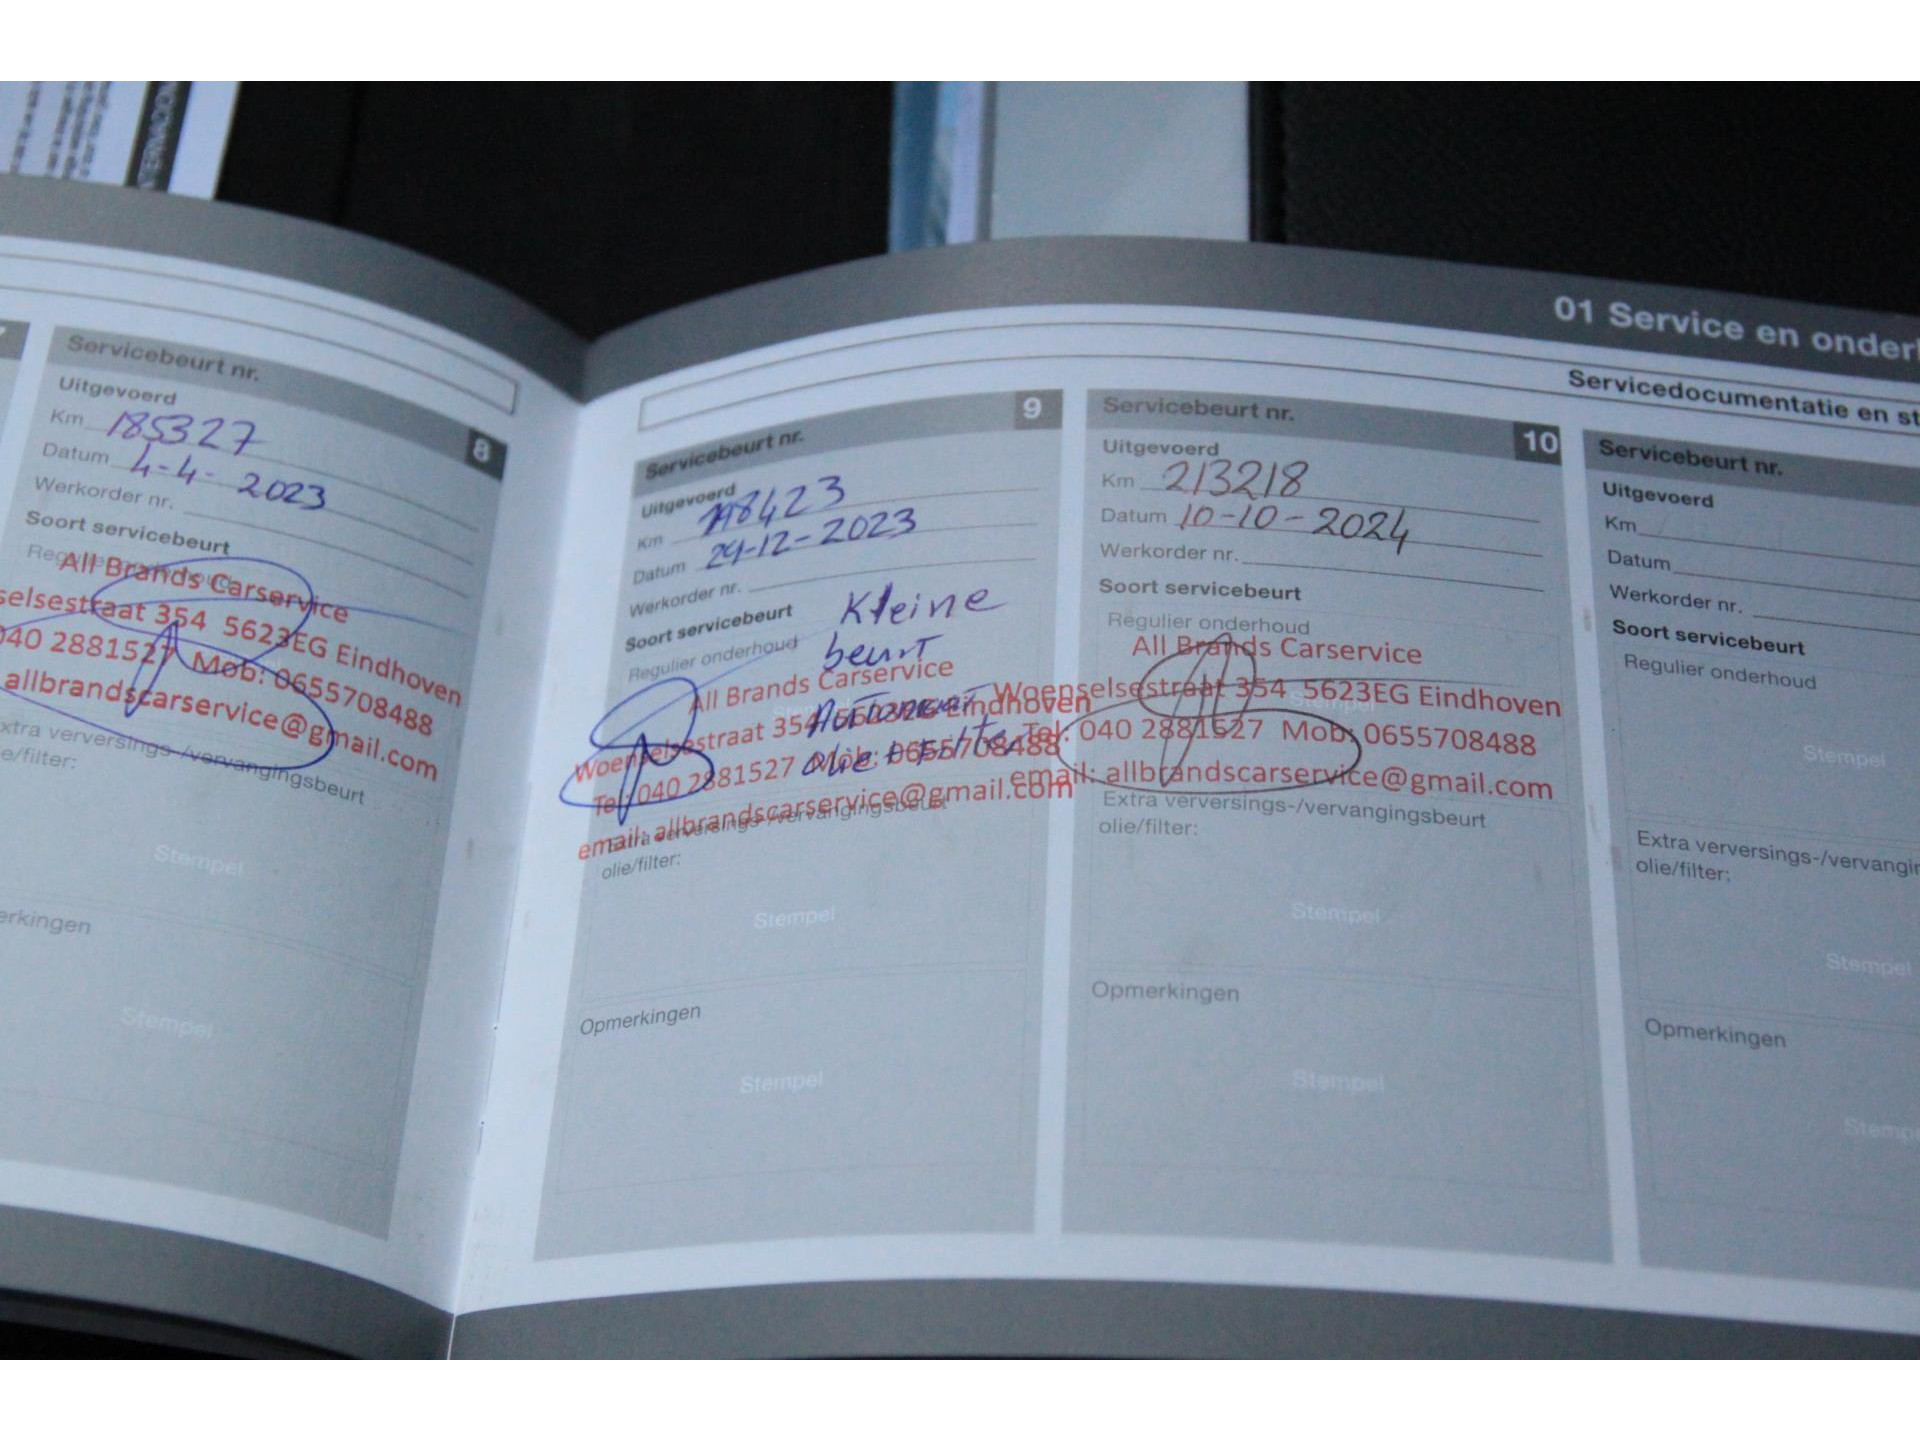 01 Service en onderh
Servicedocumentatie en st
Servicebeurt nr. 8
Uitgevoerd
Km 185327
Datum 4-4-2023
Werkorder nr.
Soort servicebeurt
Regulier onderhoud
All Brands Carservice
selsestraat 354 5623EG Eindhoven
040 2881527 Mob: 0655708488
allbrandscarservice@gmail.com
xtra verversings-/vervangingsbeurt
e/filter:
Stempel
erkingen
Stempel
Servicebeurt nr. 9
Uitgevoerd
Km 198423
Datum 29-12-2023
Werkorder nr.
Soort servicebeurt Kleine
Regulier onderhoud beurt
All Brands Carservice
Woenselsestraat 354 5623EG Eindhoven
Tel: 040 2881527 Mob: 0655708488
olie + filter
email: allbrandscarservice@gmail.com
Extra verversings-/vervangingsbeurt
olie/filter:
Stempel
Opmerkingen
Stempel
Servicebeurt nr. 10
Uitgevoerd
Km 213218
Datum 10-10-2024
Werkorder nr.
Soort servicebeurt
Regulier onderhoud
All Brands Carservice
Woenselsestraat 354 5623EG Eindhoven
Stempel
Tel: 040 2881527 Mob: 0655708488
email: allbrandscarservice@gmail.com
Extra verversings-/vervangingsbeurt
olie/filter:
Stempel
Opmerkingen
Stempel
Servicebeurt nr.
Uitgevoerd
Km
Datum
Werkorder nr.
Soort servicebeurt
Regulier onderhoud
Stempel
Extra verversings-/vervangin
olie/filter:
Stempel
Opmerkingen
Stempe